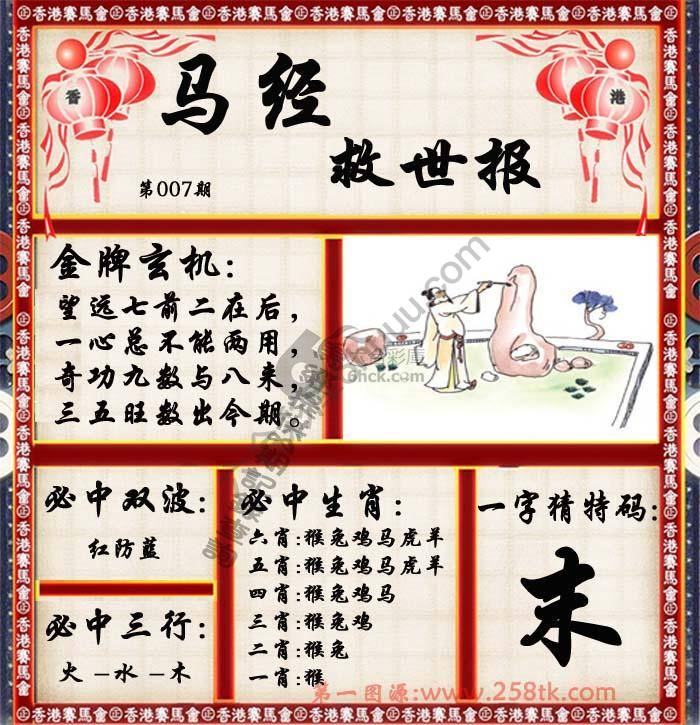 香
港
马经
救世报
第007期
金牌玄机:
望远七前二在后,
一心总不能两用,
奇功九数与八来,
三五旺数出今期。
必中双波:
红防蓝
必中三行:
火-水-木
必中生肖:
六肖:猴兔鸡马虎羊
五肖:猴兔鸡马虎羊
四肖:猴兔鸡马
三肖:猴兔鸡
二肖:猴兔
一肖:猴
一字猜特码:
末
第一图源:www.258tk.com
香港賽馬會